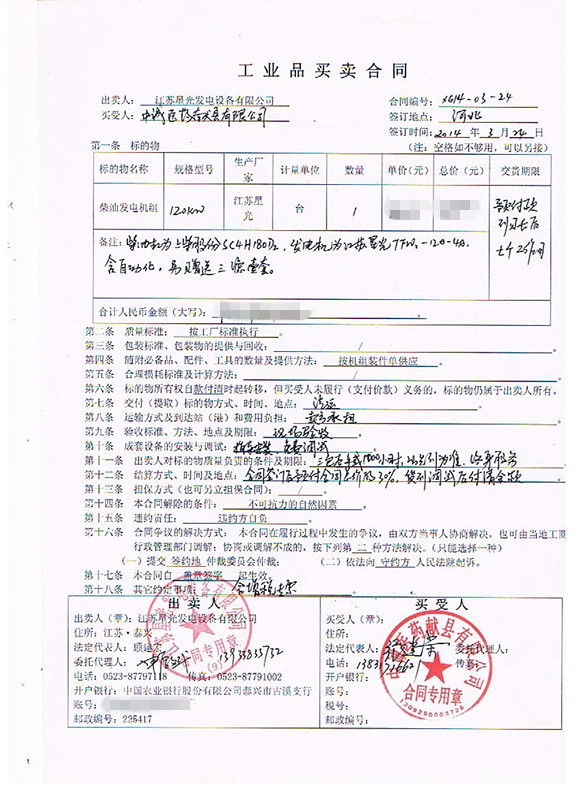 工业品买卖合同
出卖人： 江苏星光发电设备有限公司
合同编号： XG14-03-24
买受人： 有限公司
签订地点： 河北
签订时间：2014 年 3 月 24 日
第一条 标的物
（注：空格如不够用，可以另接）
标的物名称 规格型号 生产厂家 计量单位 数量 单价（元） 总价（元） 交货期限
柴油发电机组 120KW 江苏星光 台 1
备注：柴油机为上柴股份SC4H180D2，发电机为江苏星光
含自动化，另赠送三滤壹套。
合计人民币金额（大写）：
第二条 质量标准： 按工厂标准执行 。
第三条 包装标准、包装物的提供与回收： / 。
第四条 随附必备品、配件、工具的数量及提供方法： 按机组装件单供应 。
第五条 合理损耗标准及计算方法： / 。
第六条 标的物所有权自款付清时起转移，但买受人未履行（支付价款）义务的，标的物仍属于出卖人所有。
第七条 交付（提取）标的物方式、时间、地点： 。
第八条 运输方式及到达站（港）和费用负担： 承担 。
第九条 验收标准、方法、地点及期限： 现场验收 。
第十条 成套设备的安装与调试： 免费调试 。
第十一条 出卖人对标的物质量负责的条件及期限：
第十二条 结算方式、时间及地点： 合同签订后预付合同总价的30%，货到调试后付清余款
第十三条 担保方式（也可另立担保合同）： / 。
第十四条 本合同解除的条件： 不可抗力的自然因素 。
第十五条 违约责任： 违约方自负 。
第十六条 合同争议的解决方式：本合同在履行过程中发生的争议，由双方当事人协商解决，也可由当地工商
行政管理部门调解；协商或调解不成的，按下列第 二 种方法解决。（只能选择一种）
（一）提交 签约地 仲裁委员会仲裁； （二）依法向 守约方 人民法院起诉。
第十七条 本合同自 盖章签字 起生效。
第十八条 其它约定事项：
出 卖 人
出卖人（章）：江苏星光发电设备有限公司
住所：江苏·泰兴
法定代表人：顾建宏
委托代理人：
电话：0523-87797118 传真：0523-87791002
开户银行：中国农业银行股份有限公司泰兴市古溪支行
账号：
邮政编号：225417
合同专用章
买 受 人
买受人（章）：
住所：
法定代表人： 委托代理人：
电话： 传真：
开户银行：
账号：
税号：
邮政编号：
合同专用章